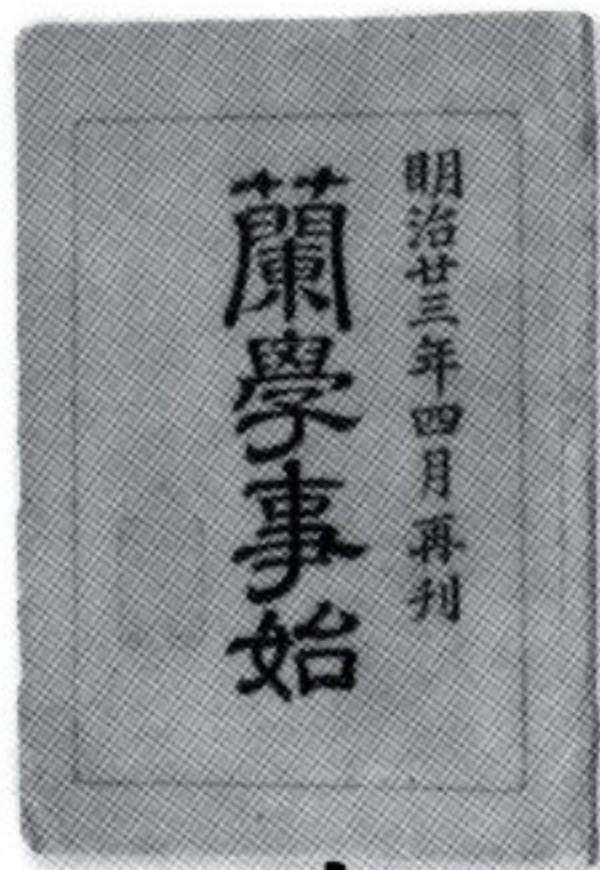 明治廿三年四月再刊
蘭學事始